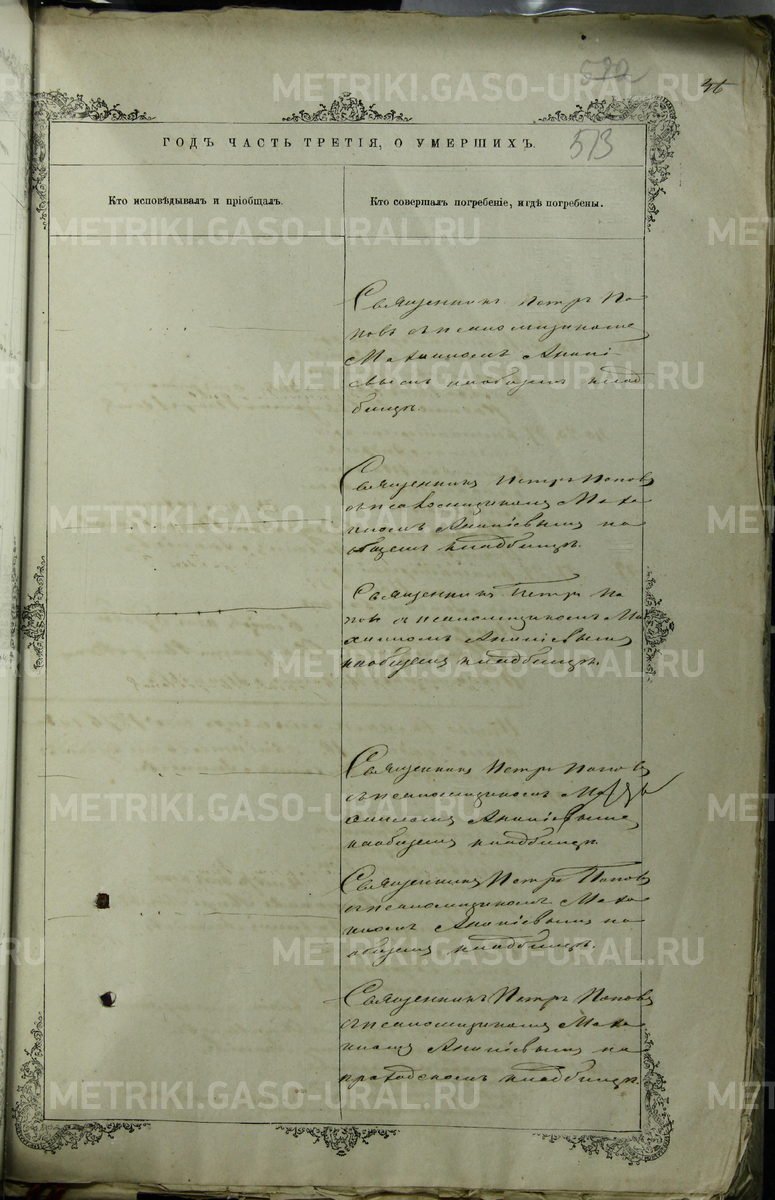 590
513
ГОДЪ ЧАСТЬ ТРЕТІЯ, О УМЕРШИХЪ.
Кто исповѣдывалъ и пріобщалъ.
Кто совершалъ погребеніе, и гдѣ погребены.
Священникъ Петръ По-
повъ съ псаломщикомъ
Анані-
евымъ на общемъ клад-
бищѣ.
Священникъ Петръ Поповъ
съ псаломщикомъ
Ананіевымъ на
общемъ кладбищѣ.
Священникъ Петръ По
повъ съ псаломщикомъ
Ананіевымъ
на общемъ кладбищѣ.
Священникъ Петръ Поповъ
съ псаломщикомъ
Ананіевымъ
на общемъ кладбищѣ.
Священникъ Петръ Поповъ
съ псаломщикомъ
Ананіевымъ на
общемъ кладбищѣ.
Священникъ Петръ Поповъ
съ псаломщикомъ
Ананіевымъ на
приходскомъ кладбищѣ.
METRIKI.GASO-URAL.RU